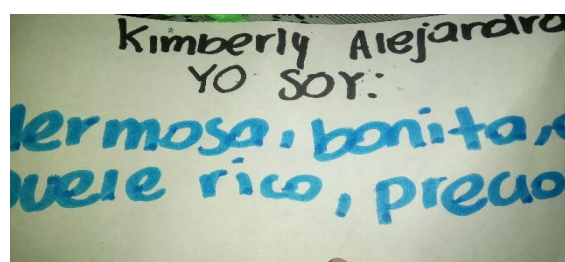 Kimberly Alejandra
YO SOY:
Hermosa, bonita,
huele rico, precio